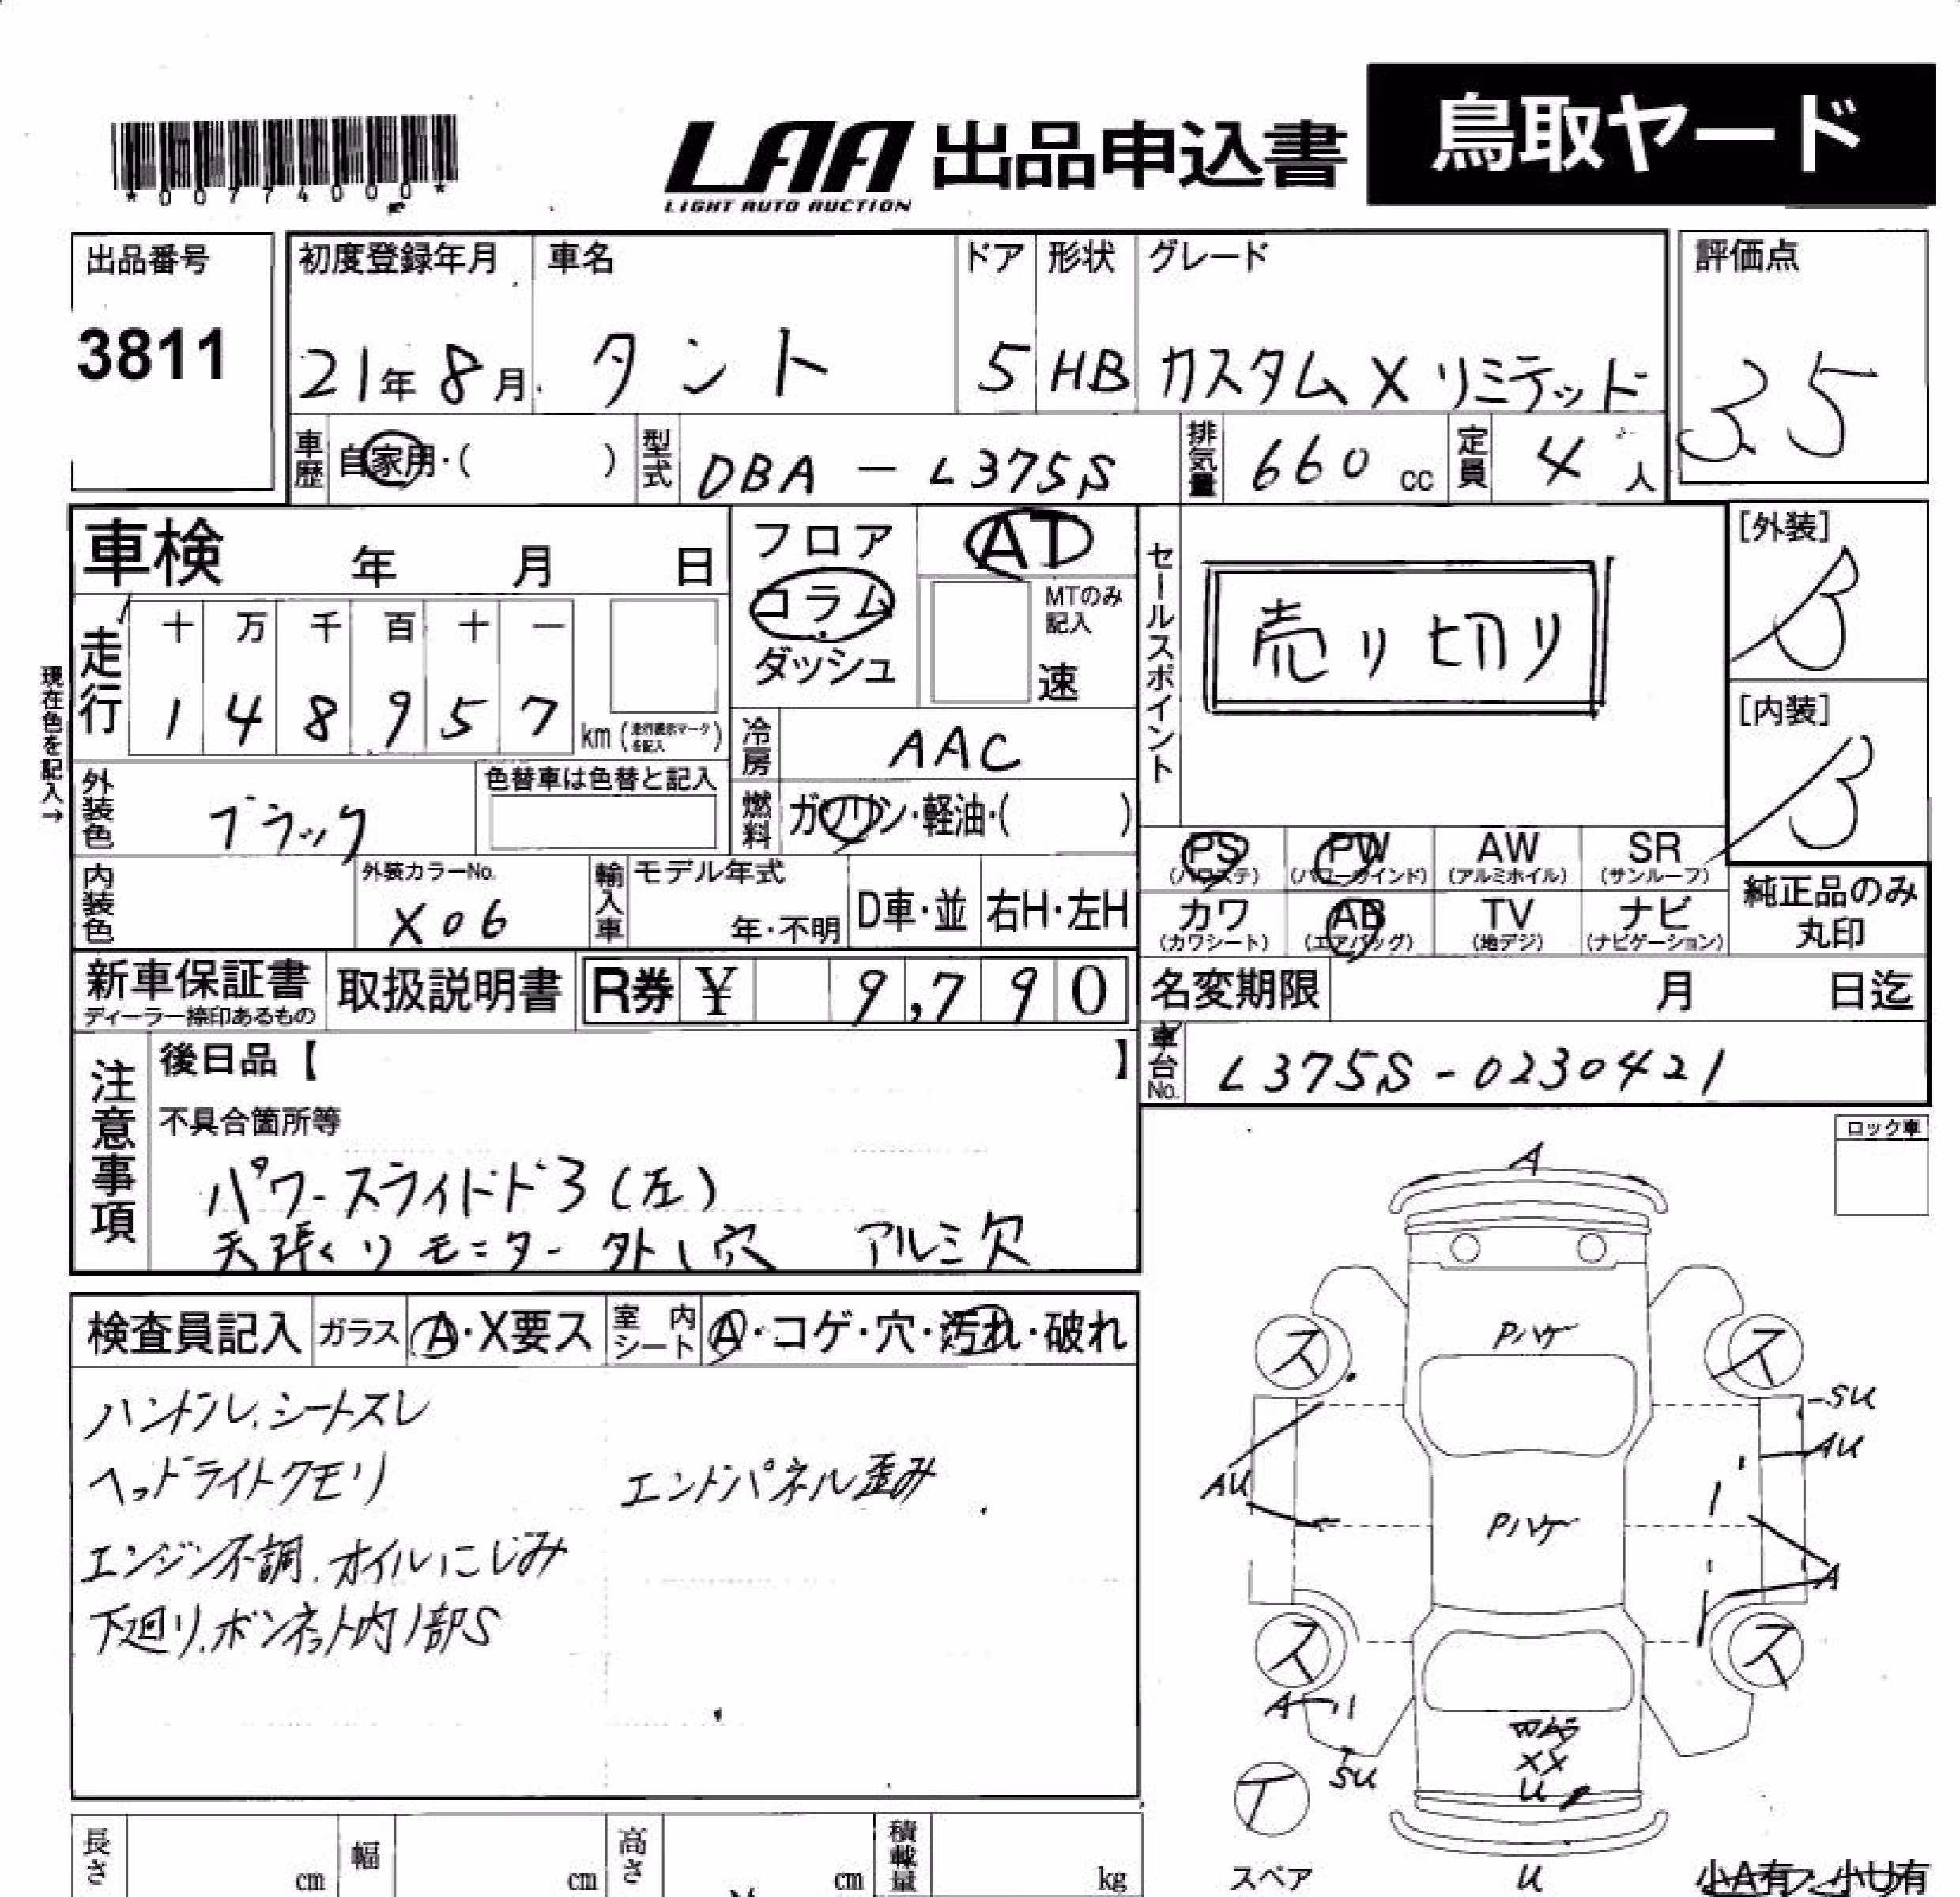 *00774000*
LAA 出品申込書 鳥取ヤード
LIGHT AUTO AUCTION
出品番号 初度登録年月 車名 ドア 形状 グレード 評価点
3811 21年8月 タント 5 HB カスタム X リミテッド 35
車歴 自家用・( ) 型式 DBA - L375S 排気量 660 cc 定員 4 人
車検 年 月 日 フロア AT セールスポイント [外装]
コラム MTのみ記入 売り切り B
ダッシュ 速
走行 十 万 千 百 十 一 [内装]
1 4 8 9 5 7 km 冷房 AAC B
現在色を記入→
外装色 ブラック 色替車は色替と記入 燃料 ガソリン・軽油・( )
PS PW AW SR
(パワステ) (パワーウインド) (アルミホイル) (サンルーフ)
内装色 外装カラーNo. X06 輸入車 モデル年式 年・不明 D車・並 右H・左H
カワ AB TV ナビ 純正品のみ
(カワシート) (エアバッグ) (地デジ) (ナビゲーション) 丸印
新車保証書 取扱説明書 R券 ¥ 9,790 名変期限 月 日迄
ディーラー捺印あるもの
注意事項 後日品【 】 車台No. L375S-0230421
不具合箇所等
パワースライドドア(左)
天張りモニター外し穴 アルミ欠
ロック車
検査員記入 ガラス A・X要ス 室内シート A・コゲ・穴・汚れ・破れ
ハンドル、シートスレ
ヘッドライトクモリ エンドパネル歪み
エンジン不調、オイルにじみ
下廻り、ボンネット内1部S
A
Pハゲ
ス ス
SU
AU
AU
Pハゲ
A
ス ス
A
SU
XX
U
スペア U 小A有 小U有
長さ cm 幅 cm 高さ cm 積載量 kg